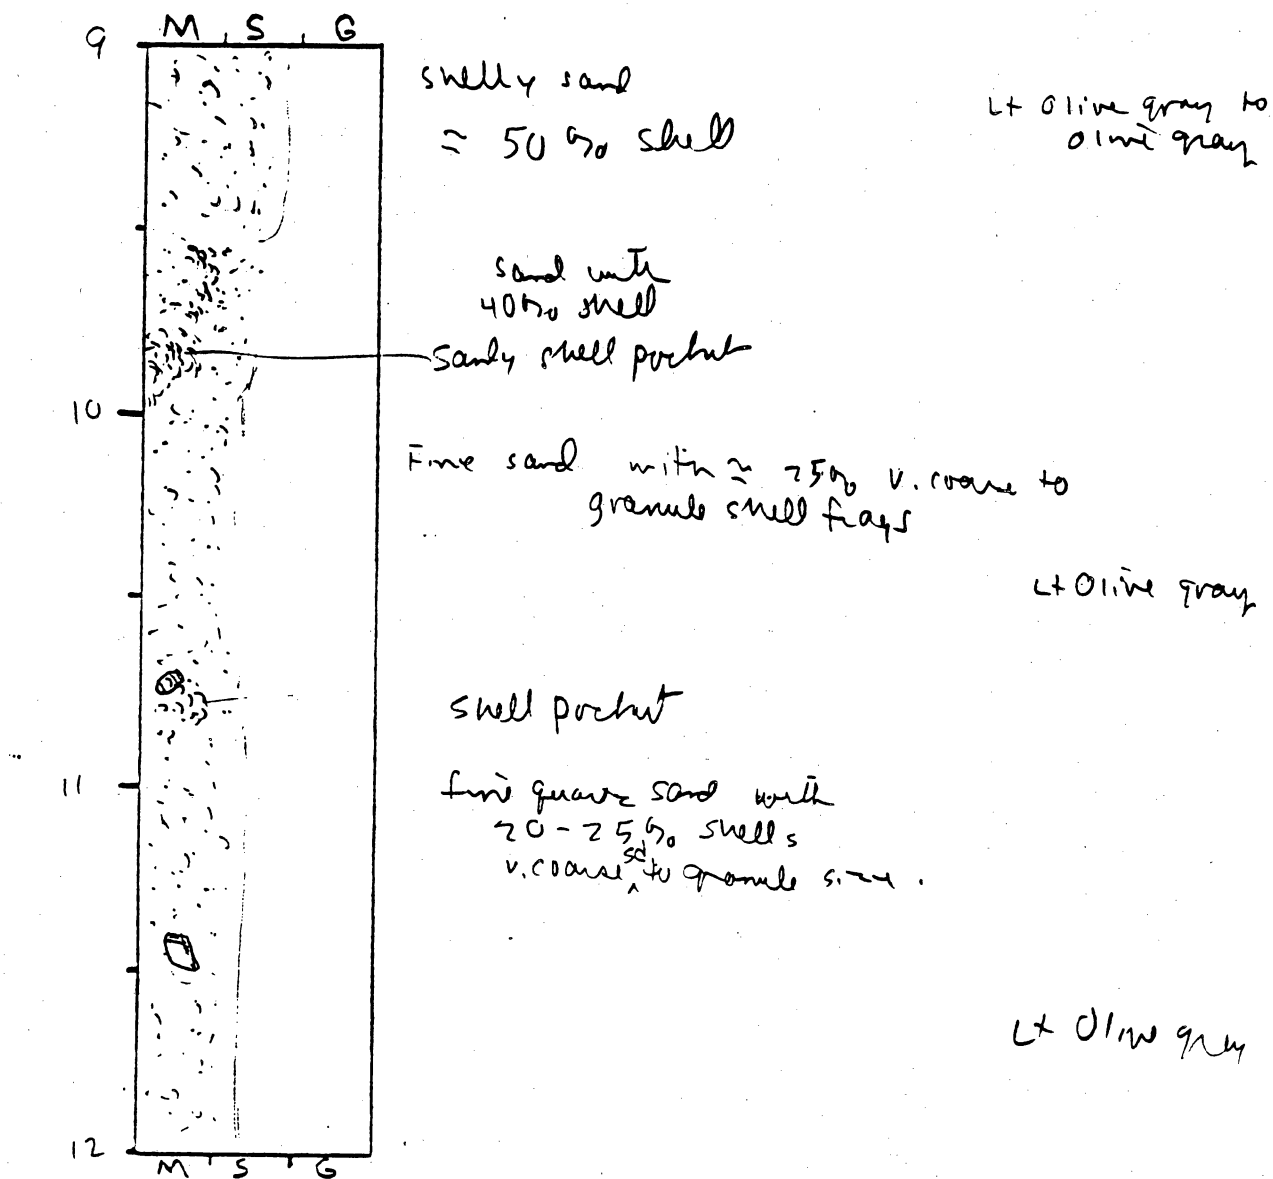 M S G
9
shelly sand
≈ 50% shell
Lt Olive gray to
olive gray
sand with
40% shell
Sandy shell pocket
10
Fine sand with ≈ 25% v. coarse to
granule shell frags
Lt Olive gray
shell pocket
11
fine quartz sand with
20-25% shells
v. coarse sd to granule size.
Lt Olive gray
12
M S G